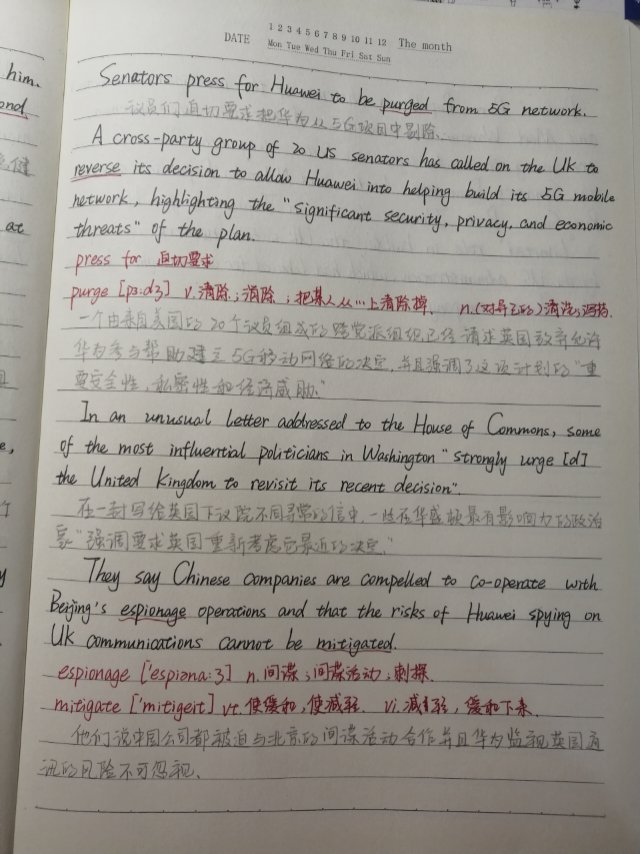 him.
ond
at
e,
DATE
1 2 3 4 5 6 7 8 9 10 11 12 The month
Mon Tue Wed Thu Fri Sat Sun
Senators press for Huawei to be purged from 5G network.
议员们迫切要求把华为从5G项目中剔除.
A cross-party group of 20 US senators has called on the UK to
reverse its decision to allow Huawei into helping build its 5G mobile
network, highlighting the "significant security, privacy, and economic
threats" of the plan.
press for 迫切要求
purge [pɜ:dʒ] v.清除;消除;把某人从…上清除掉. n.(对异己的)清洗;泻药.
一个由来自美国的20个议员组成的跨党派组织已经请求英国放弃允许
华为参与帮助建立5G移动网络的决定,并且强调了这项计划的"重
要安全性,私密性和经济威胁."
In an unusual letter addressed to the House of Commons, some
of the most influential politicians in Washington "strongly urge [d]
the United Kingdom to revisit its recent decision".
在一封写给英国下议院不同寻常的信中,一些在华盛顿最有影响力的政治
家"强调要求英国重新考虑它最近的决定."
They say Chinese companies are compelled to co-operate with
Beijing's espionage operations and that the risks of Huawei spying on
UK communications cannot be mitigated.
espionage ['espiəna:ʒ] n.间谍;间谍活动;刺探.
mitigate ['mitigeit] vt.使缓和,使减轻. vi.减轻,缓和下来.
他们说中国公司都被迫与北京的间谍活动合作并且华为监视英国通
讯的风险不可忽视.